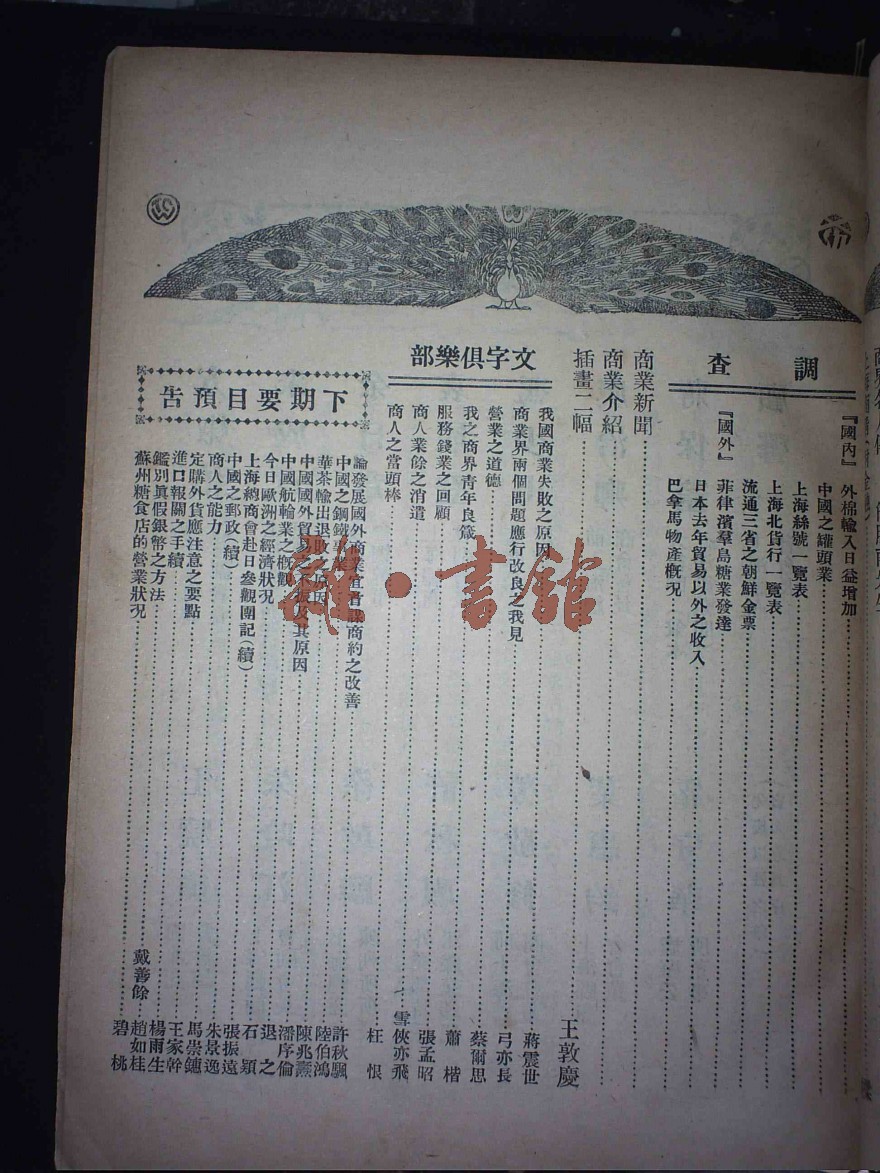 調查
『國內』 外棉輸入日益增加
中國之罐頭業
上海絲號一覽表
上海北貨行一覽表
流通三省之朝鮮金票
『國外』 菲律濱羣島糖業發達
日本去年貿易以外之收入
巴拿馬物產概況
商業新聞
商業介紹
插畫二幅 王敦慶
文字俱樂部
我國商業失敗之原因 蔣震世
商業界兩個問題應行改良之我見 弓亦長
營業之道德 蔡爾思
我之商界青年良箴 蕭楷
服務錢業之回顧 張孟昭
商人業餘之消遣 雪俠亦飛
商人之當頭棒 枉恨
下期要目預告
論發展國外商業宜首謀商約之改善 許秋颿
中國之鋼鐵事業 陸伯鴻
華茶輸出退敗之原因 陳兆燾
中國國外貿易之不振及其原因 潘序倫
中國航輪業之概觀 退之
今日歐洲之經濟狀況 石穎
上海總商會赴日參觀團記(續) 張振遠
中國之郵政(續) 朱景逸
商人之能力 馬崇鏸
定購外貨應注意之要點 王家幹
進口報關之手續 楊雨生
鑑別眞假銀幣之方法 趙如桂
蘇州糖食店的營業狀況 戴善餘 碧桃
雜·書館